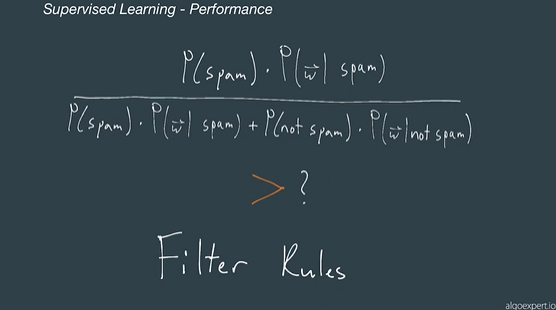 Supervised Learning - Performance
P(spam) · P(w⃗ | spam)
P(spam) · P(w⃗ | spam) + P(not spam) · P(w⃗ | not spam)
> ?
Filter Rules
algoexpert.io